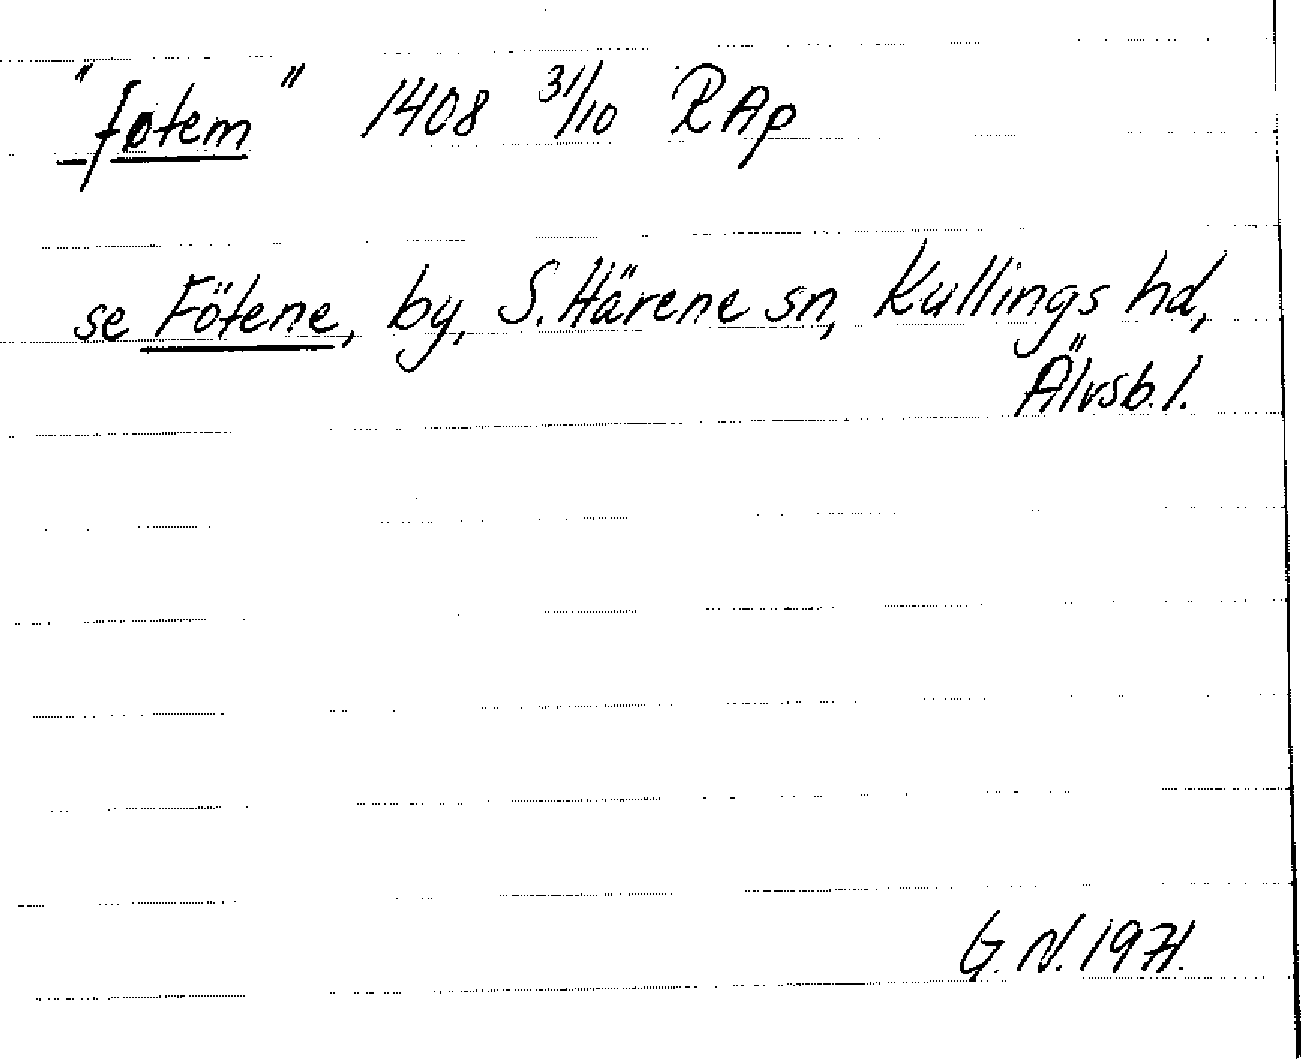 "føtem" 1408 31/10 RAp
se Fötene, by, S. Härene sn, Kullings hd,
Älvsb. l.
G. N. 1971.